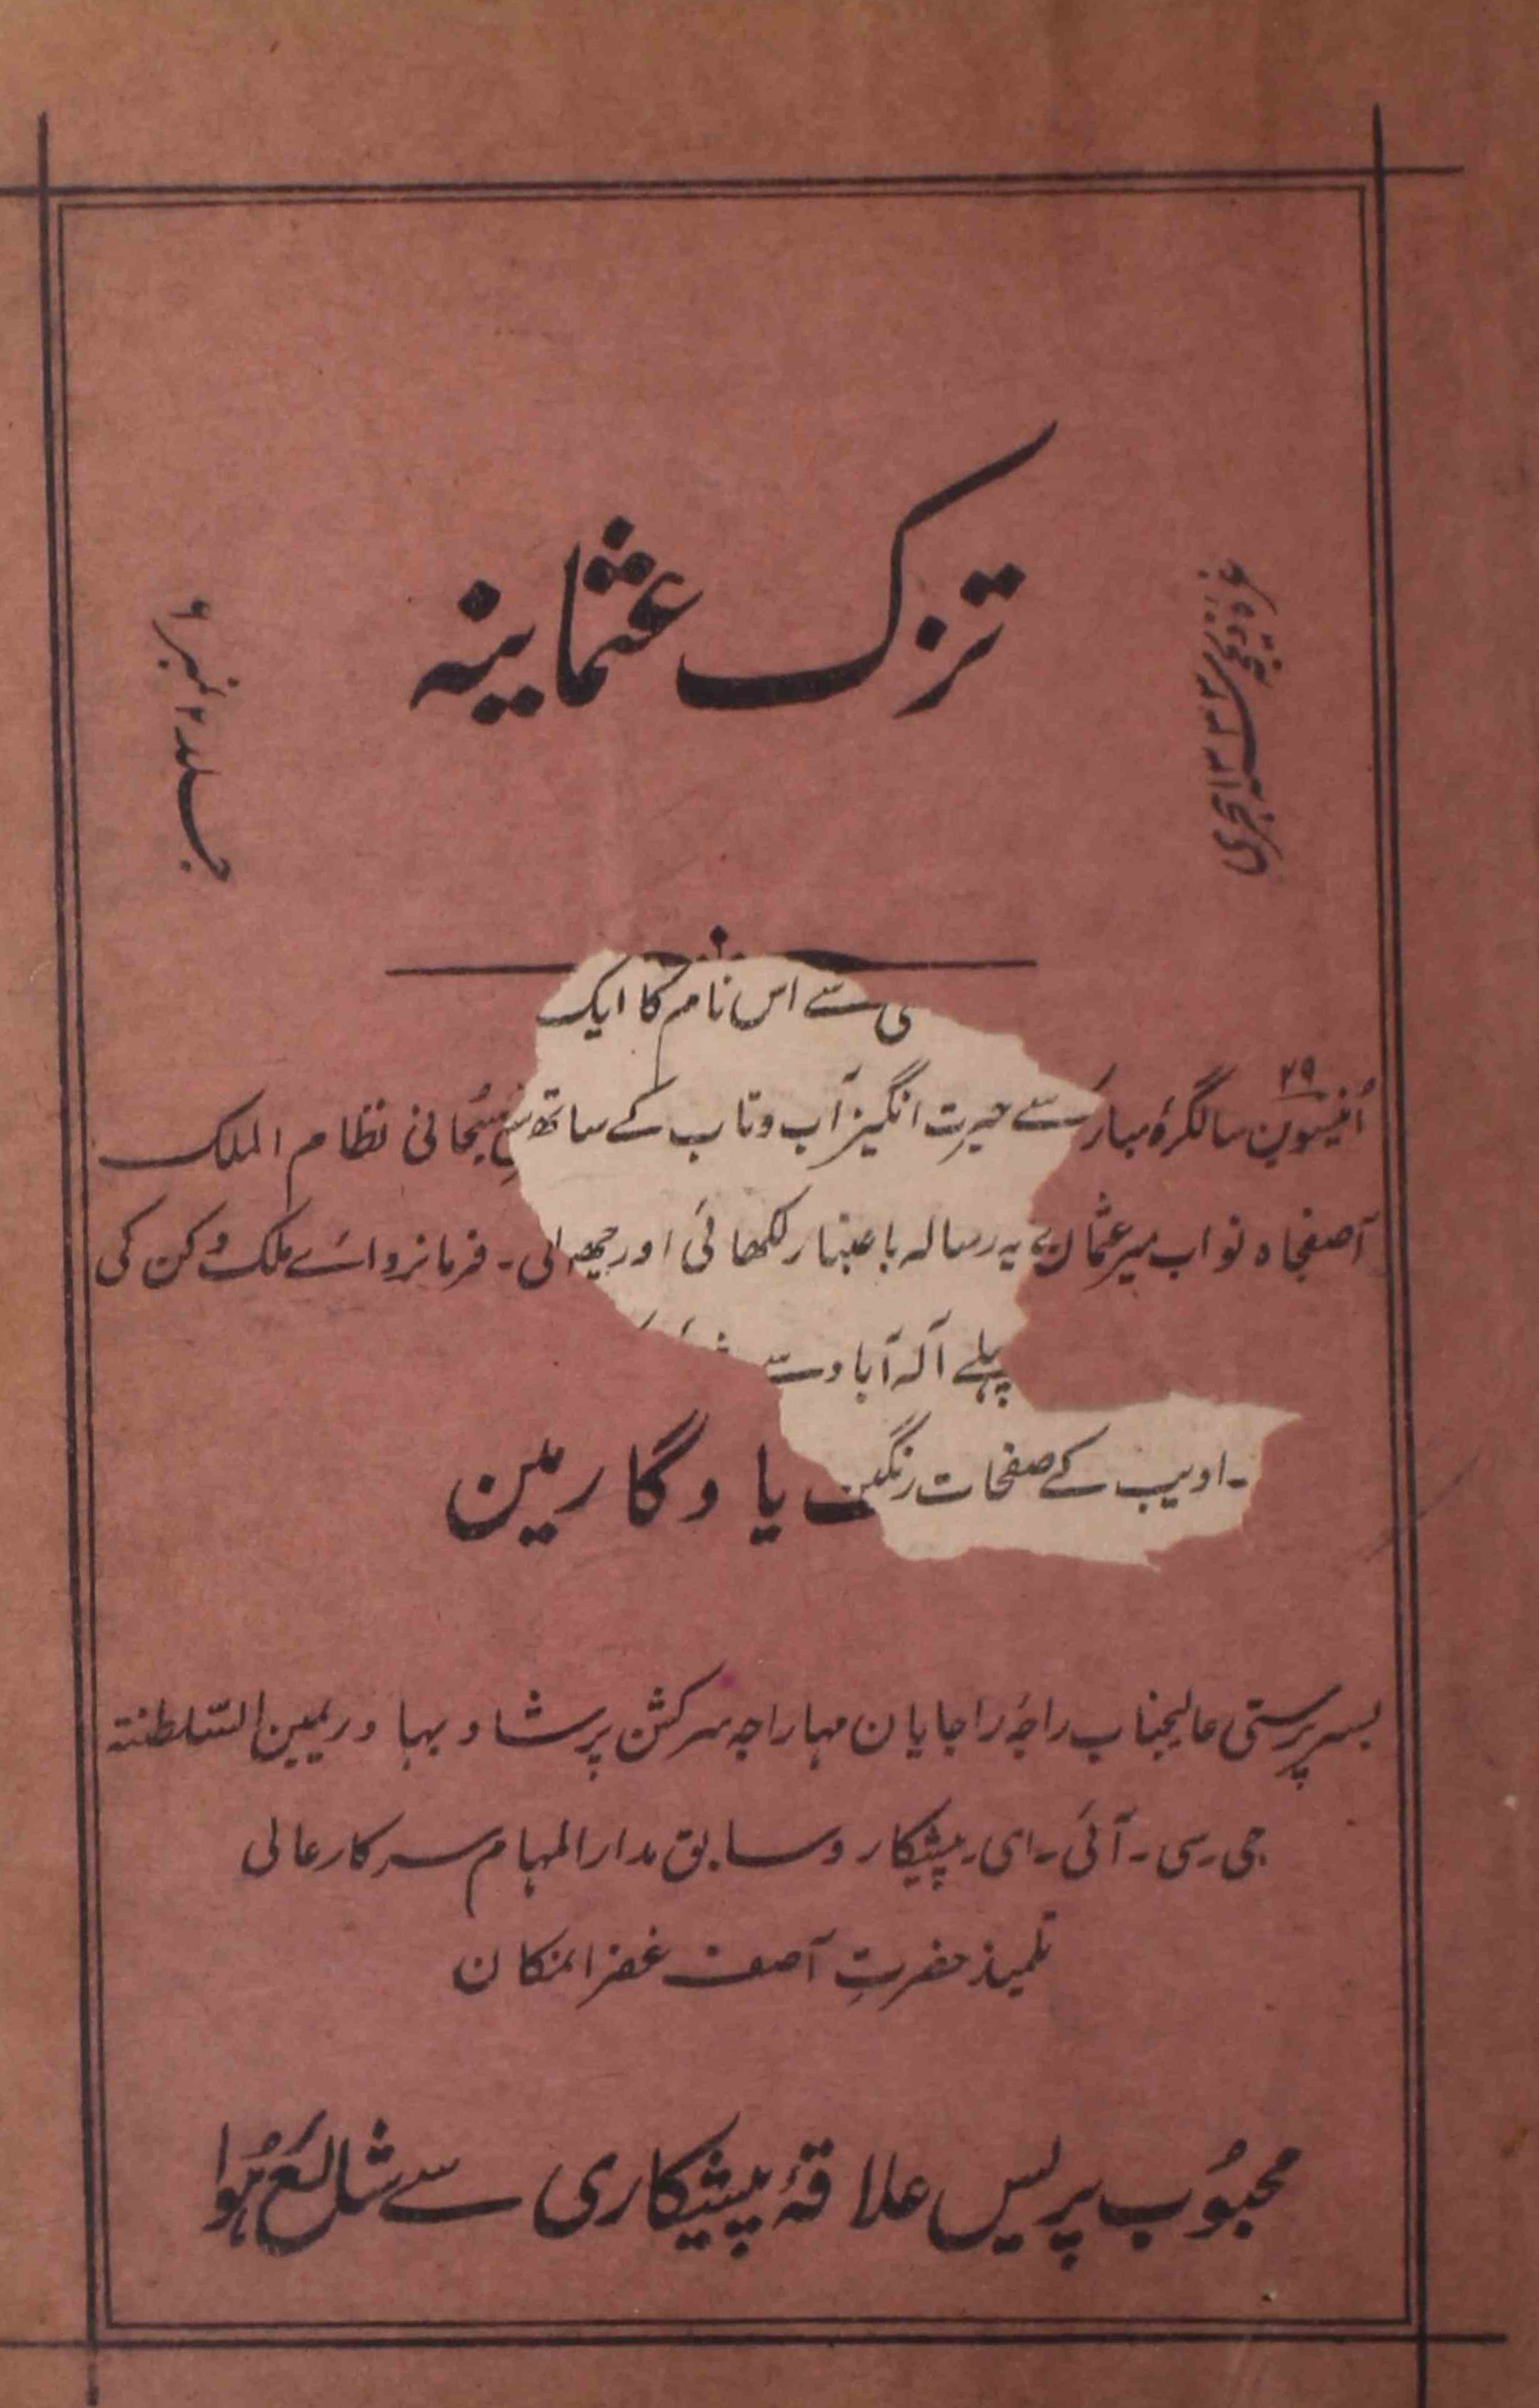 تزک عثمانیہ
غرہ ذیحجہ ۱۳۳۳ ہجری
جلد ۲ نمبر ۹
سے اس نام کا ایک
۲۹
اُنتیسوین سالگرۂ مبارک سے حیرت انگیز آب وتاب کے ساتھ سُبحانی نظام الملک
آصفجاہ نواب میر عثمان یہ رسالہ باعتبار لکھائی اور چھپائی۔ فرمانروائے ملک دکن کی
پہلے آلہ آباد سے
۔ادیب کے صفحات رنگین یادگار مین
بسرپرستی عالیجناب راجۂ راجایان مہاراجہ سرکشن پرشاد بہادر یمین السّلطنة
جی۔سی۔آئی۔ای۔پیشکار وسابق مدارالمہام سرکارعالی
تلمیذ حضرتِ آصف غفرانمکان
محبُوب پریس علاقۂ پیشکاری سے شائع ہُوا